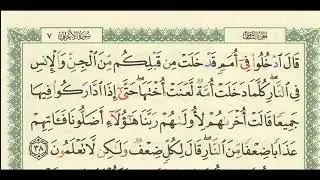 الجزء الثامن ٧ سورة الأعراف
قَالَ ٱدْخُلُوا۟ فِىٓ أُمَمٍ قَدْ خَلَتْ مِن قَبْلِكُم مِّنَ ٱلْجِنِّ وَٱلْإِنسِ
فِى ٱلنَّارِ ۖ كُلَّمَا دَخَلَتْ أُمَّةٌ لَّعَنَتْ أُخْتَهَا ۖ حَتَّىٰٓ إِذَا ٱدَّارَكُوا۟ فِيهَا
جَمِيعًا قَالَتْ أُخْرَىٰهُمْ لِأُولَىٰهُمْ رَبَّنَا هَٰٓؤُلَآءِ أَضَلُّونَا فَـَٔاتِهِمْ
عَذَابًا ضِعْفًا مِّنَ ٱلنَّارِ ۖ قَالَ لِكُلٍّ ضِعْفٌ وَلَٰكِن لَّا تَعْلَمُونَ ٣٨